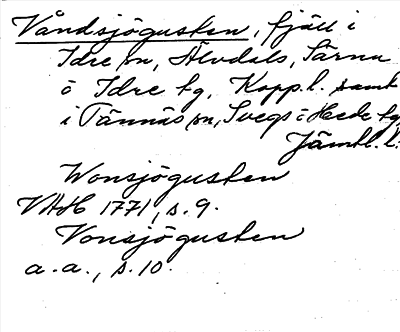 Våndsjögusten, fjäll i
Idre sn, Älvdals, Särna
o Idre tg, Kopp.l. samt
i Tännäs sn, Svegs o Hede tg
Jämtl. l.
Wonsjögusten
VAH 1771, s. 9.
Vonsjögusten
a. a., s. 10.